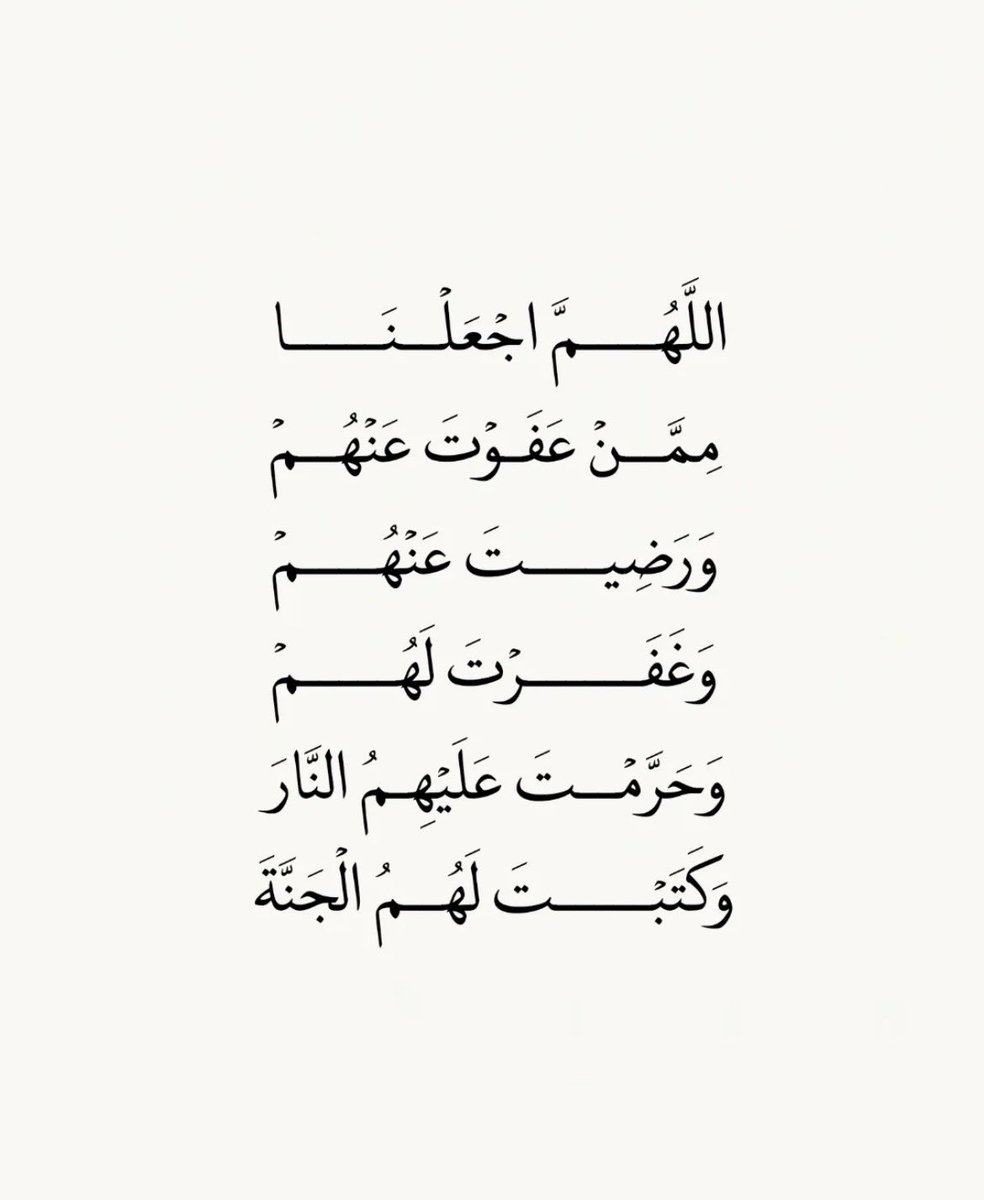 اللَّهُمَّ اجْعَلْنَا
مِمَّنْ عَفَوْتَ عَنْهُمْ
وَرَضِيتَ عَنْهُمْ
وَغَفَرْتَ لَهُمْ
وَحَرَّمْتَ عَلَيْهِمُ النَّارَ
وَكَتَبْتَ لَهُمُ الْجَنَّةَ